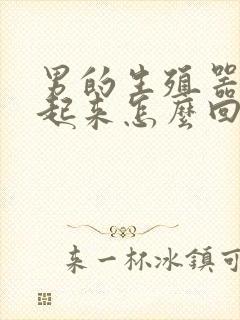 男的生殖器
起来怎麼回
来一杯冰鎮可